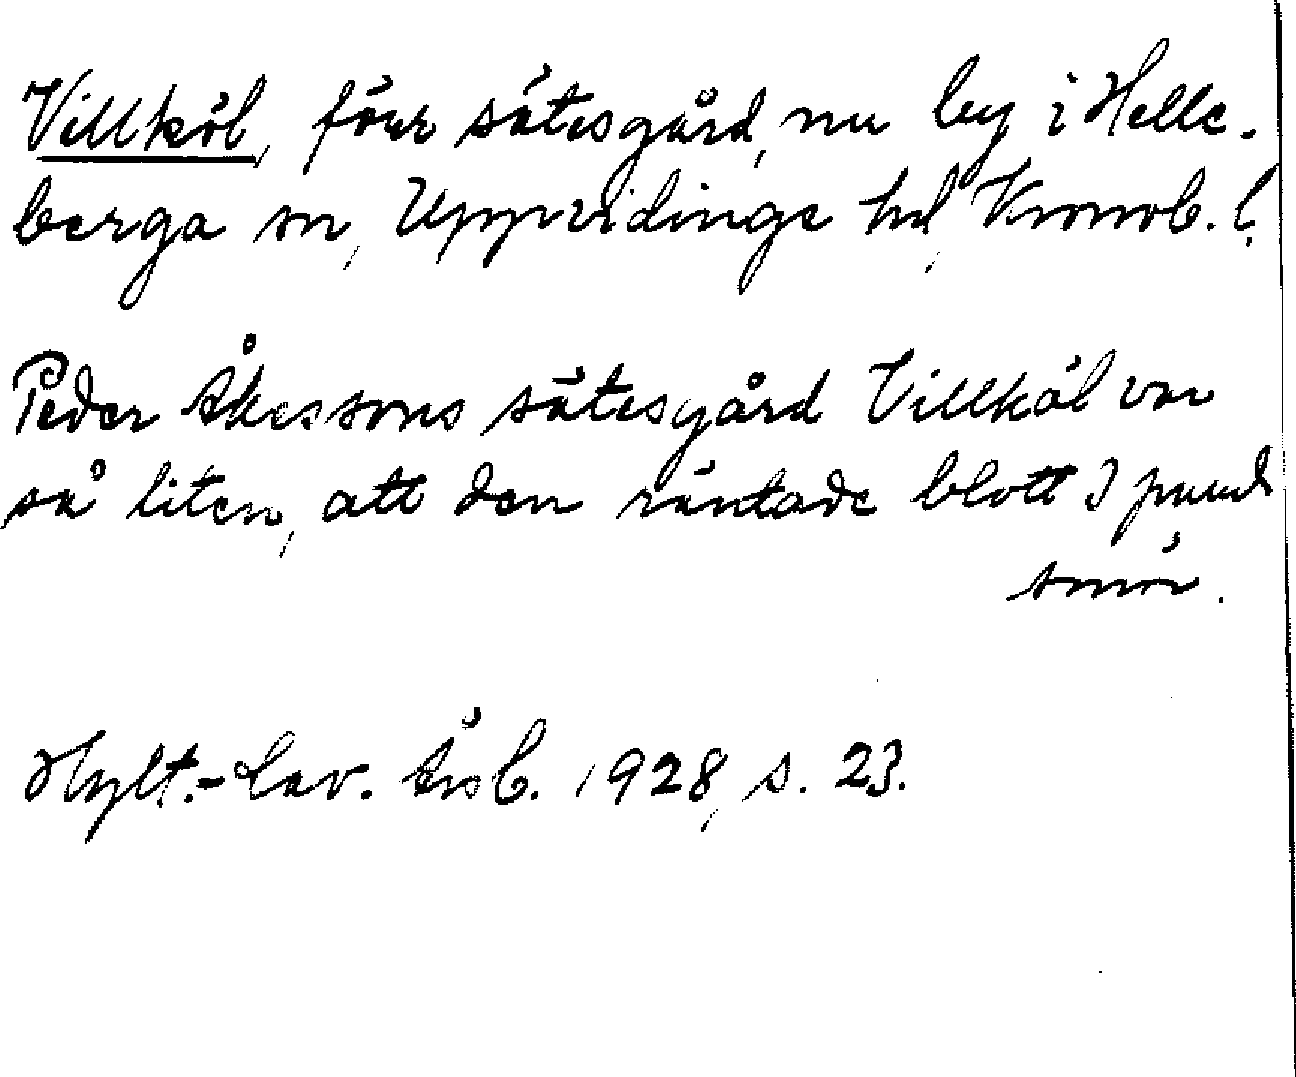 Villköl, förr sätesgård, nu by i Helle-
berga sn, Uppvidinge hd, Kronob. l.
Peder Åkessons sätesgård Villköl var
så liten, att den räntade blott 3 pund
smör.
Hylt.-Cav. Årsb. 1928, s. 23.